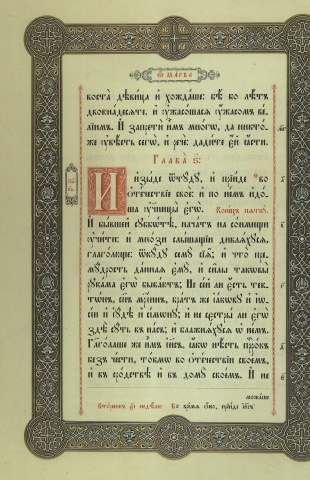 Ѿ марка
воста дѣвица и҆ хождаше: бѣ бо лѣтъ
двоюнадесяте. И҆ ᲂужасошася ᲂужасомъ ве‑
лїимъ. И҆ запрети и҆мъ многѡ, да никто‑
же ᲂувѣсть сегѡ̀, и҆ рече: дадите е҆й ꙗ҆сти.
Глава ѕ҃.
И҆ изыде ѿтуду, и҆ прїиде во
ѻ҆течествїе свое: и҆ по немъ и҆до‑
ша ᲂученицы е҆гѡ̀. Конецъ пѧтку.
И҆ бывшей субботѣ, начатъ на сонмищи
ᲂучити: и҆ мнози слышащїи дивляхуся,
глаголюще: ѿкуду сему сїѧ̑; и҆ что пре‑
мудрость данная е҆му, и҆ силы таковы
рукама е҆гѡ̀ бываютъ; Не сей ли є҆сть тек‑
тонъ, сынъ мр҃їинъ, братъ же і҆акову и҆ і҆ѡ‑
сїи и҆ і҆удѣ и҆ сімѡну; и҆ не сестры ли є҆гѡ̀
здѣ суть въ насъ; и҆ блажняхуся ѡ҆ немъ.
Глаголаше же и҆мъ і҆исъ, ꙗ҆кѡ нѣсть пр҇рокъ
безъ чести, токмѡ во ѻ҆течествїи своемъ,
и҆ въ сродствѣ и҆ въ дому своемъ. И҆ не
можаше
Во время ѻно, прїиде і҆исъ